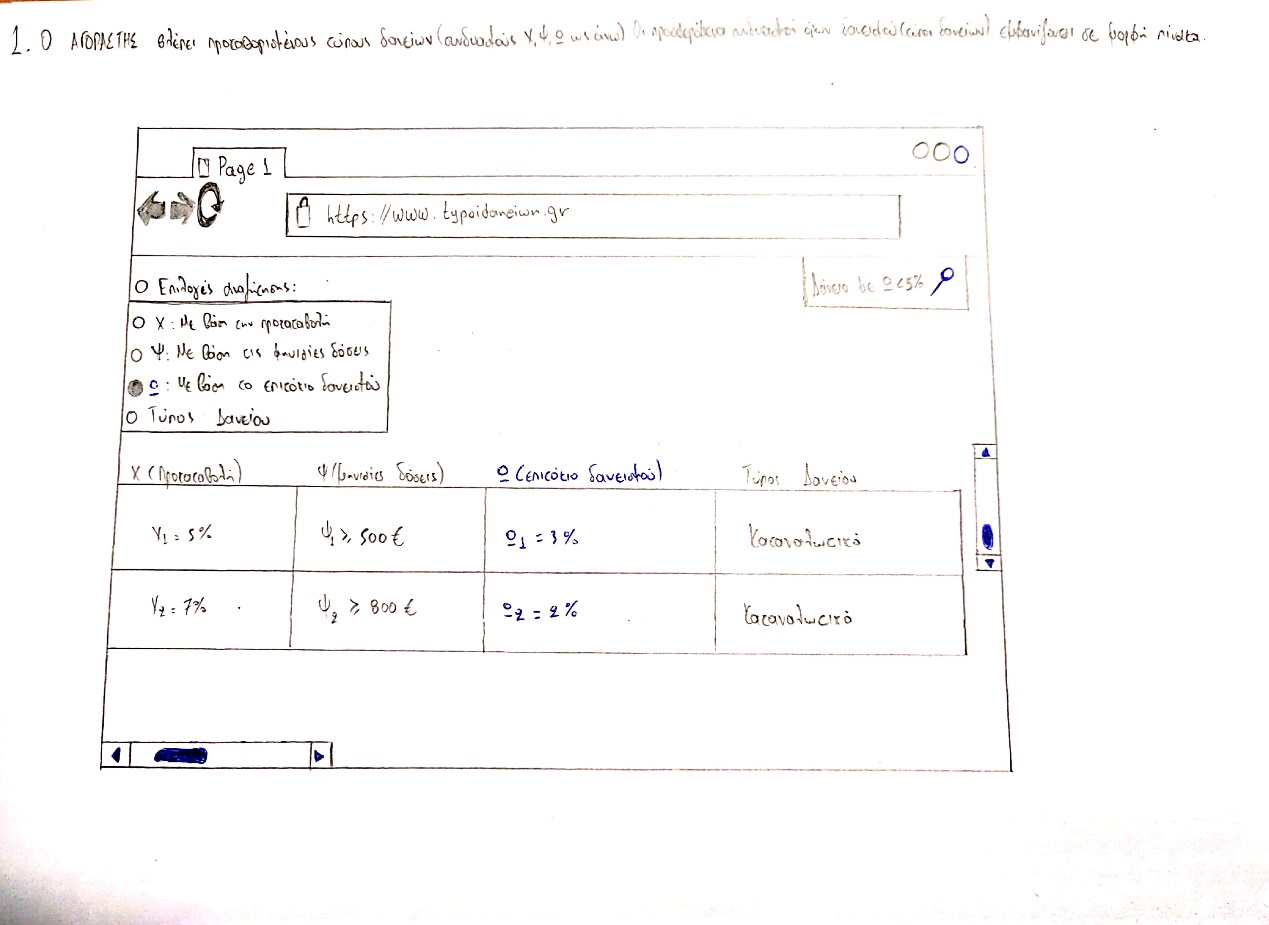 1. Ο ΑΓΟΡΑΣΤΗΣ βλέπει προκαθορισμένους τύπους δανείων (συνδυασμούς Χ, Ψ, Ω ως άνω) Οι προσφερόμενοι συνδυασμοί όρων δανεισμού (τύποι δανείων) εμφανίζονται σε μορφή πίνακα.
Page 1
https://www.typoidaneiwn.gr
Επιλογές αναζήτησης:
Δάνειο με Ω<5%
Χ: Με βάση την προκαταβολή
Ψ: Με βάση τις μηνιαίες δόσεις
Ω: Με βάση το επιτόκιο δανεισμού
Τύπος Δανείου
Χ (Προκαταβολή) Ψ (μηνιαίες δόσεις) Ω (επιτόκιο δανεισμού) Τύπος Δανείου
Χ1 = 5% Ψ1 ≥ 500 € Ω1 = 3% Καταναλωτικό
Χ2 = 7% Ψ2 ≥ 800 € Ω2 = 2% Καταναλωτικό